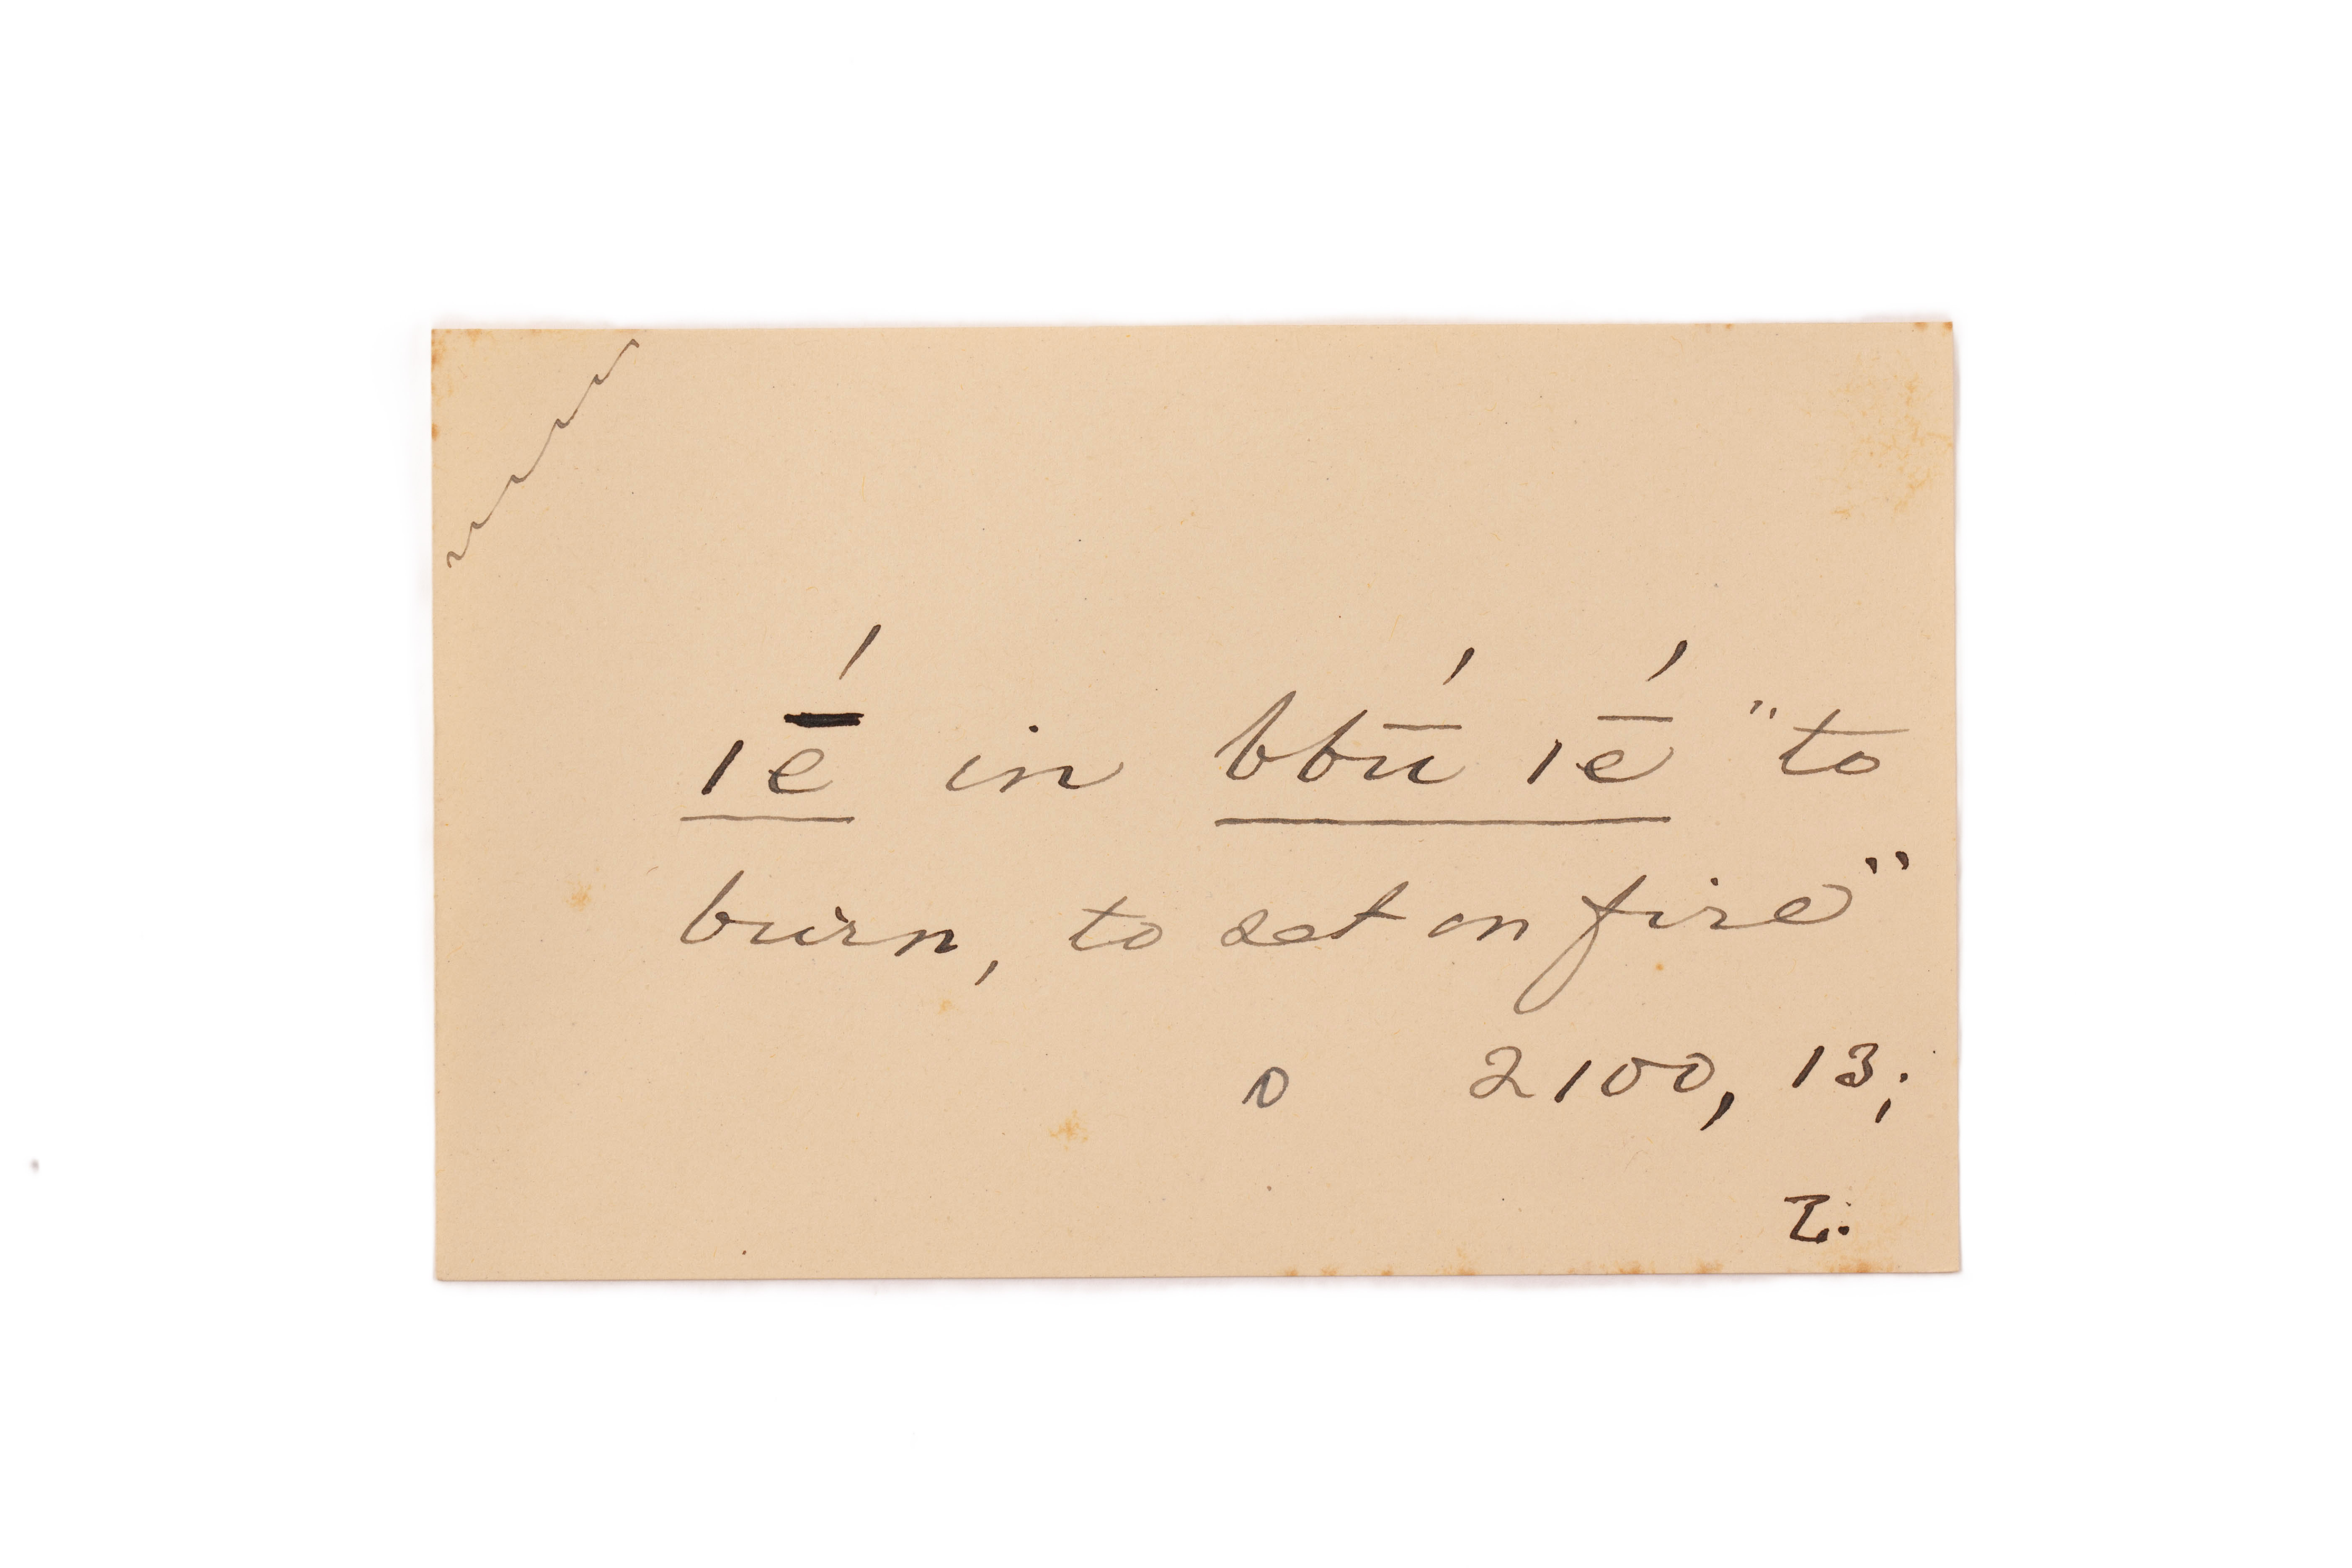 ıḗ in bbū́ ıḗ "to
burn, to set on fire"
0 2100, 13;
2.